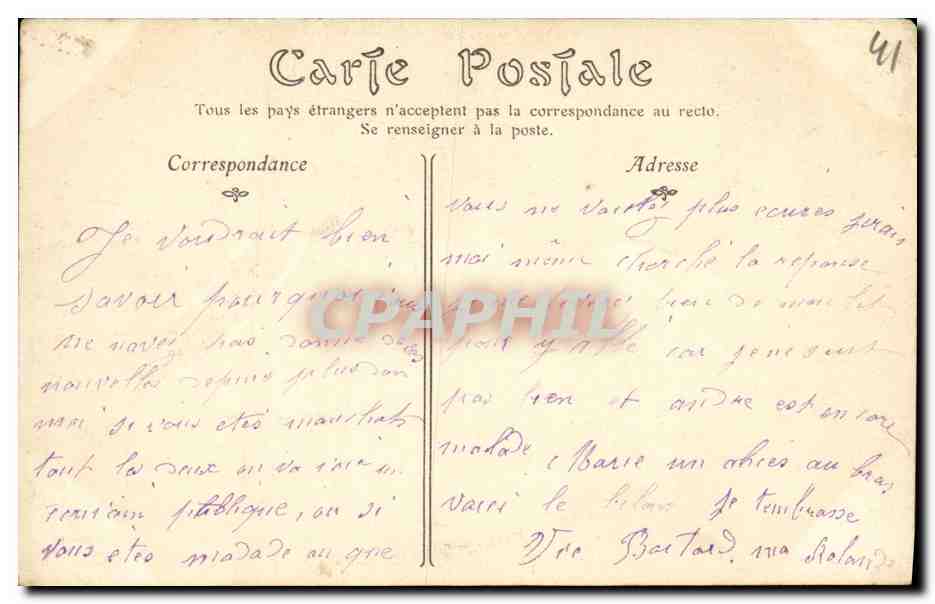 41
Carte Postale
Tous les pays étrangers n'acceptent pas la correspondance au recto.
Se renseigner à la poste.
Correspondance
Je voudrait bien
savoir pourquoi vous
me navez pas donné de vos
nouvelles depuis plus dun
moi si vous etes manchots
tout les deux on va
ecrivain publique, ou si
vous etes malade ou que
Adresse
vous ne voulez plus ecrires jirais
moi même cherché la reponse
bien de mon lit
pour y allé car je ne suit
pas bien et andre est encore
malade Marie un abcés au bras
voici le bilan je tembrasse
Vve Bastard
CPAPHIL